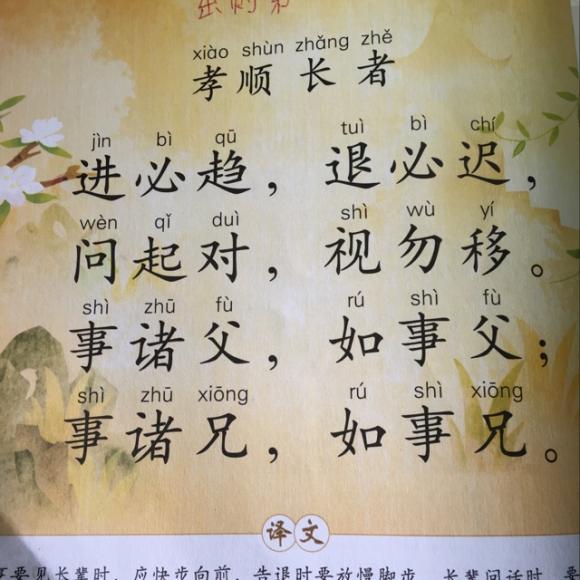 xiào shùn zhǎng zhě
孝顺长者
jìn bì qū tuì bì chí
进必趋，退必迟，
wèn qǐ duì shì wù yí
问起对，视勿移。
shì zhū fù rú shì fù
事诸父，如事父；
shì zhū xiōng rú shì xiōng
事诸兄，如事兄。
译文
要见长辈时，应快步向前，告退时要放慢脚步。长辈问话时，要